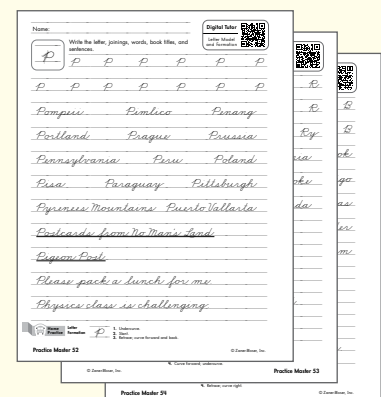 Name:
Digital Tutor
Letter Model
and Formation
Write the letter, joinings, words, book titles, and
sentences.
P
P P P P P P P
P P P P P P P
Pompeii Pimlico Penang
Portland Prague Prussia
Pennsylvania Peru Poland
Pisa Paraguay Pittsburgh
Pyrenees Mountains Puerto Vallarta
Postcards from No Man's Land
Pigeon Post
Please pack a lunch for me.
Physics class is challenging.
Home
Practice
Letter
Formation
P
1. Undercurve.
2. Slant.
3. Retrace, curve forward and back.
Practice Master 52
© Zaner-Bloser, Inc.
R
R
Ry
oke
da
4. Curve forward, undercurve.
© Zaner-Bloser, Inc.
Practice Master 53
B
B
ok
go
as
er
m
4. Retrace, curve right.
Practice Master 54
© Zaner-Bloser, Inc.